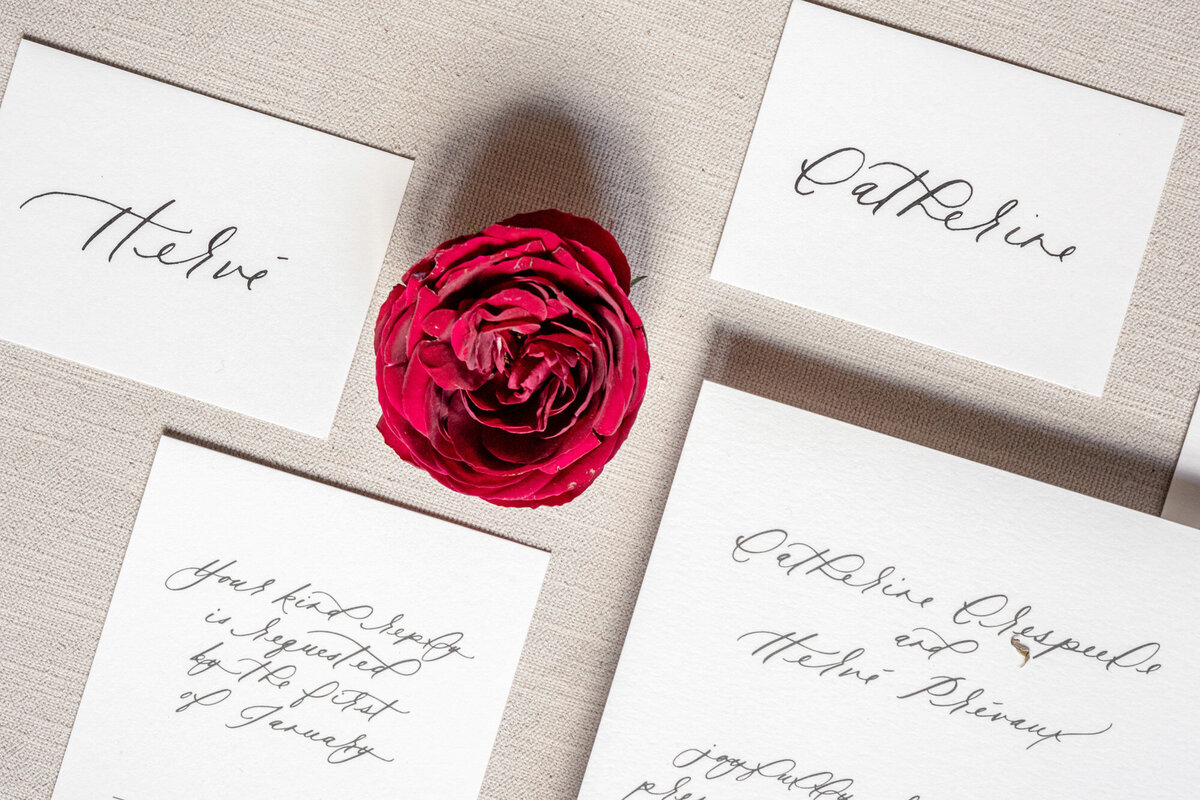 Hervé
Catherine
Your kind reply
is requested
by the first
of January
Catherine Crespeule
and
Hervé Prévaux
joyfully